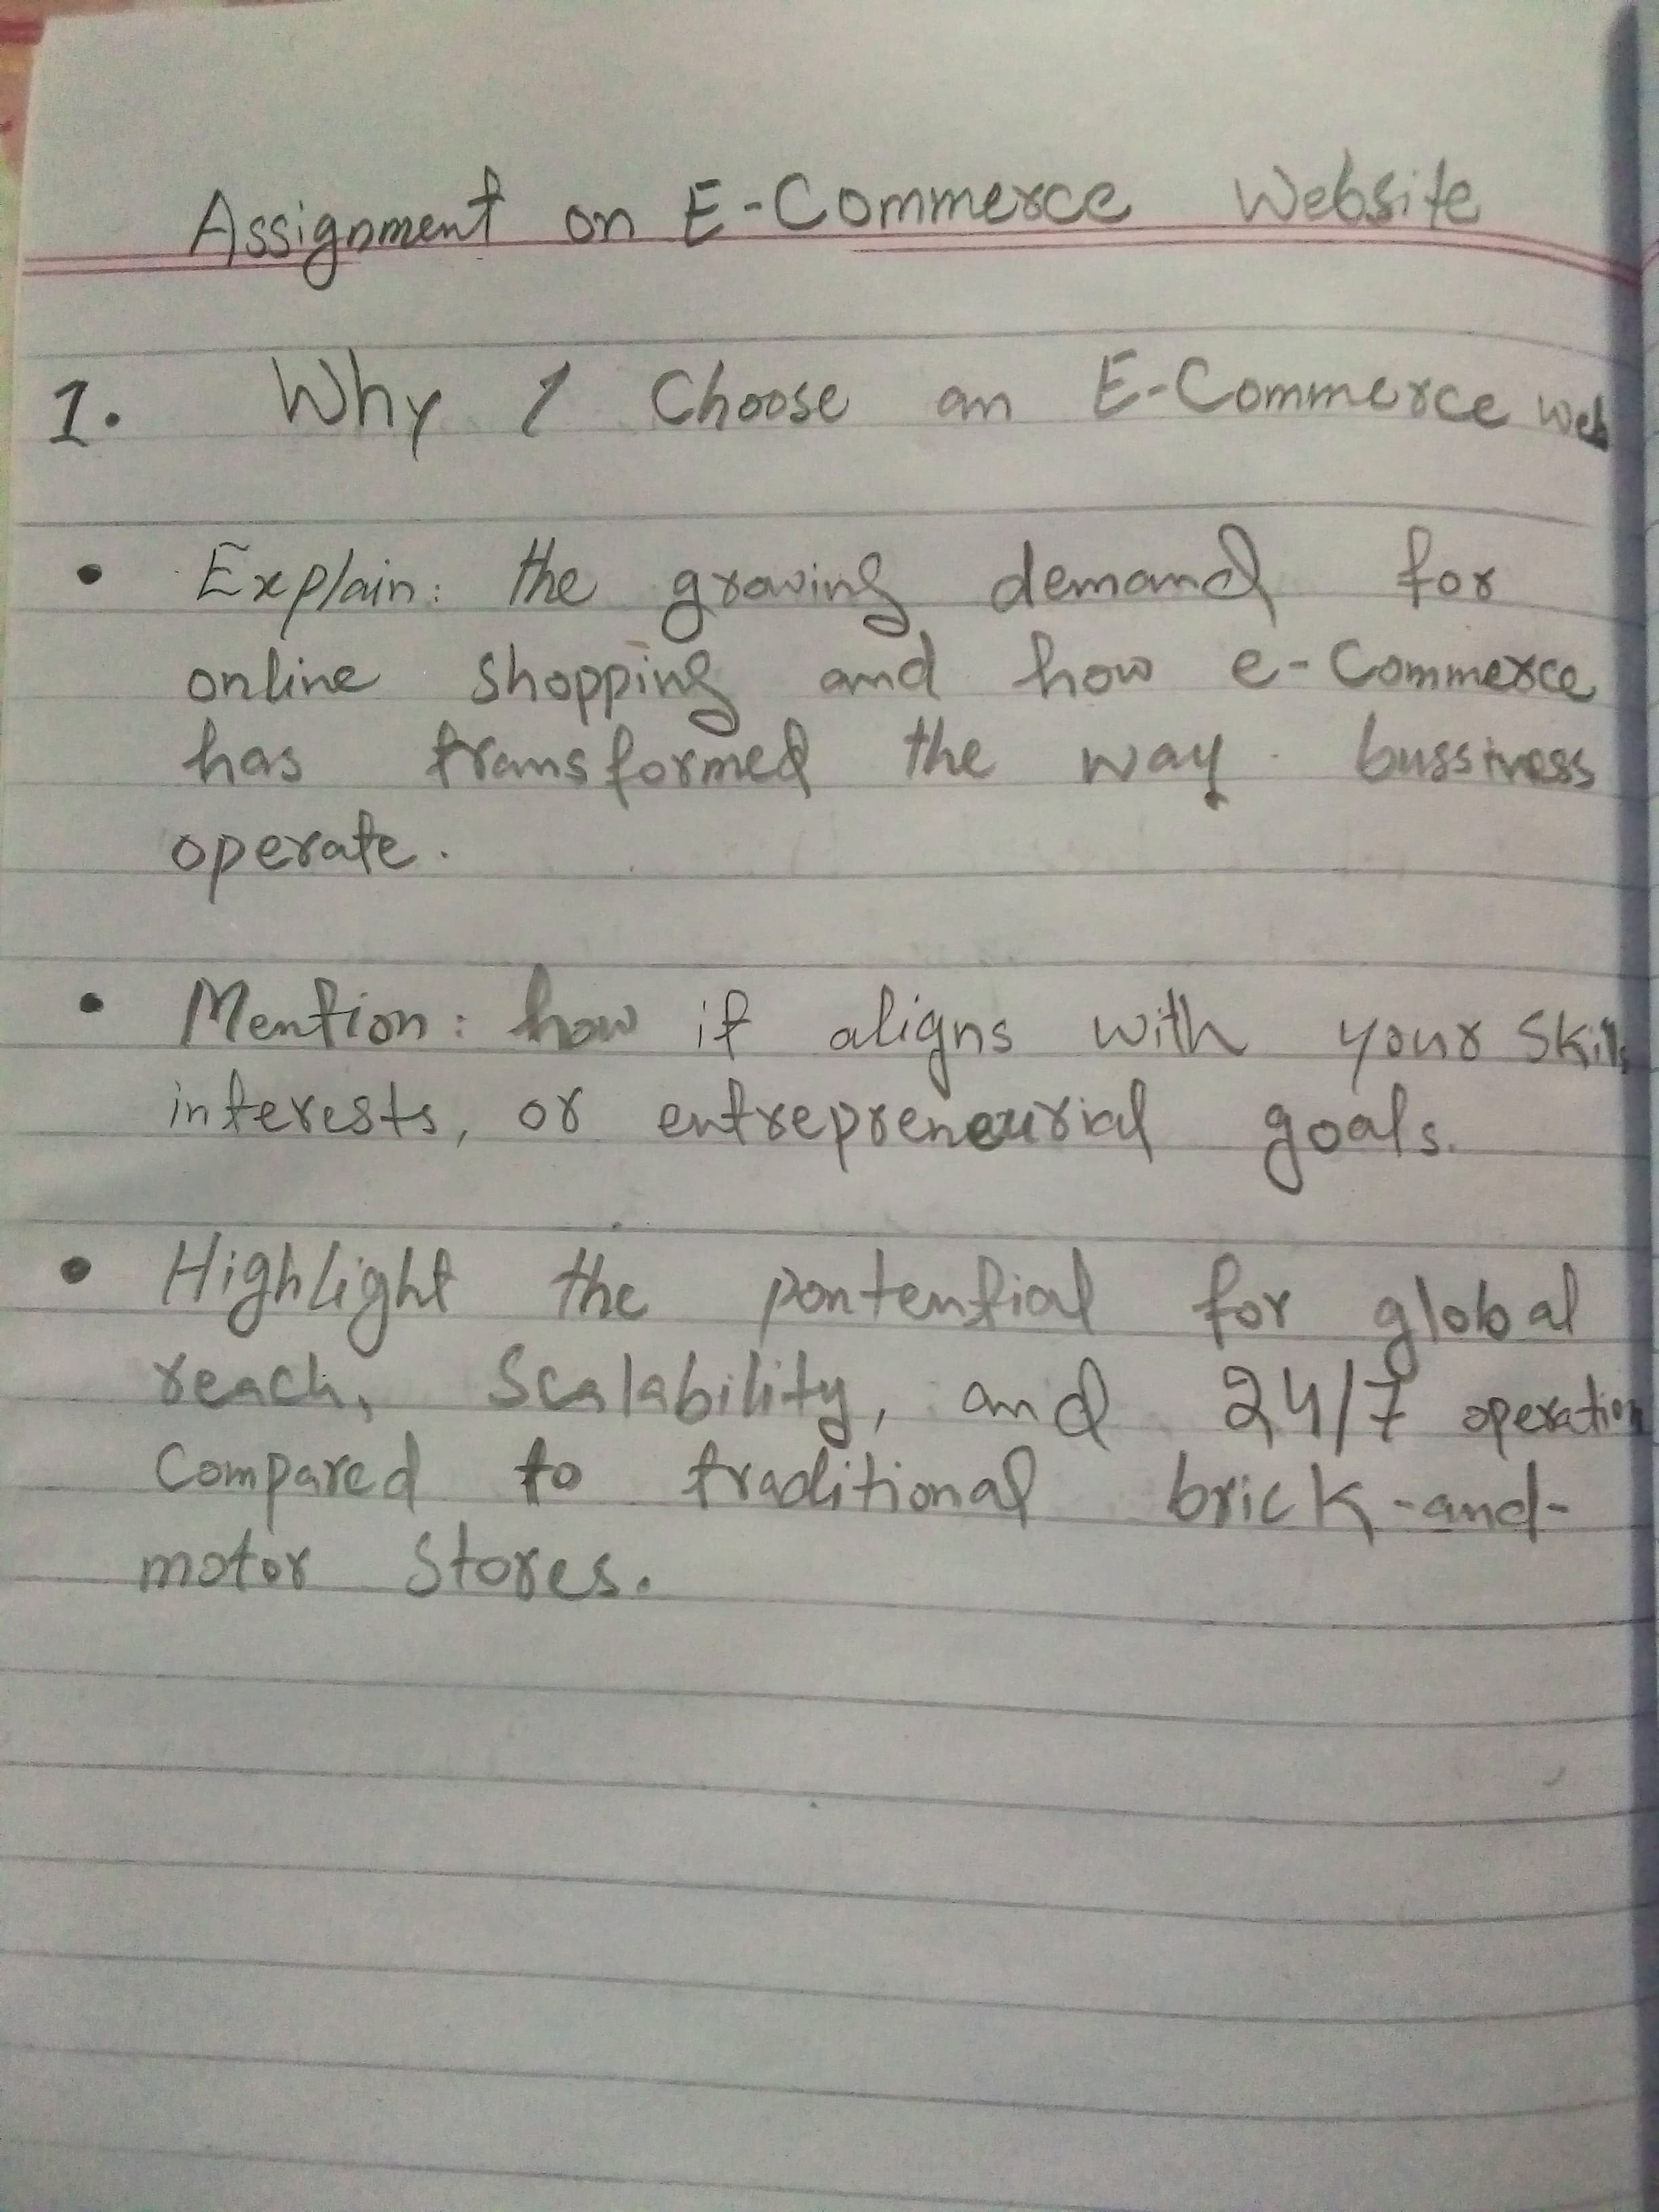 Assignment on E-Commerce Website
1. Why I Choose an E-Commerce Web
• Explain: the growing demand for
online shopping and how e-Commerce
has transformed the way bussiness
operate.
• Mention: how it aligns with your Skills
interests, or entrepreneurial goals.
• Highlight the pontential for global
reach, Scalability, and 24/7 operation
Compared to traditional brick-and-
motor Stores.